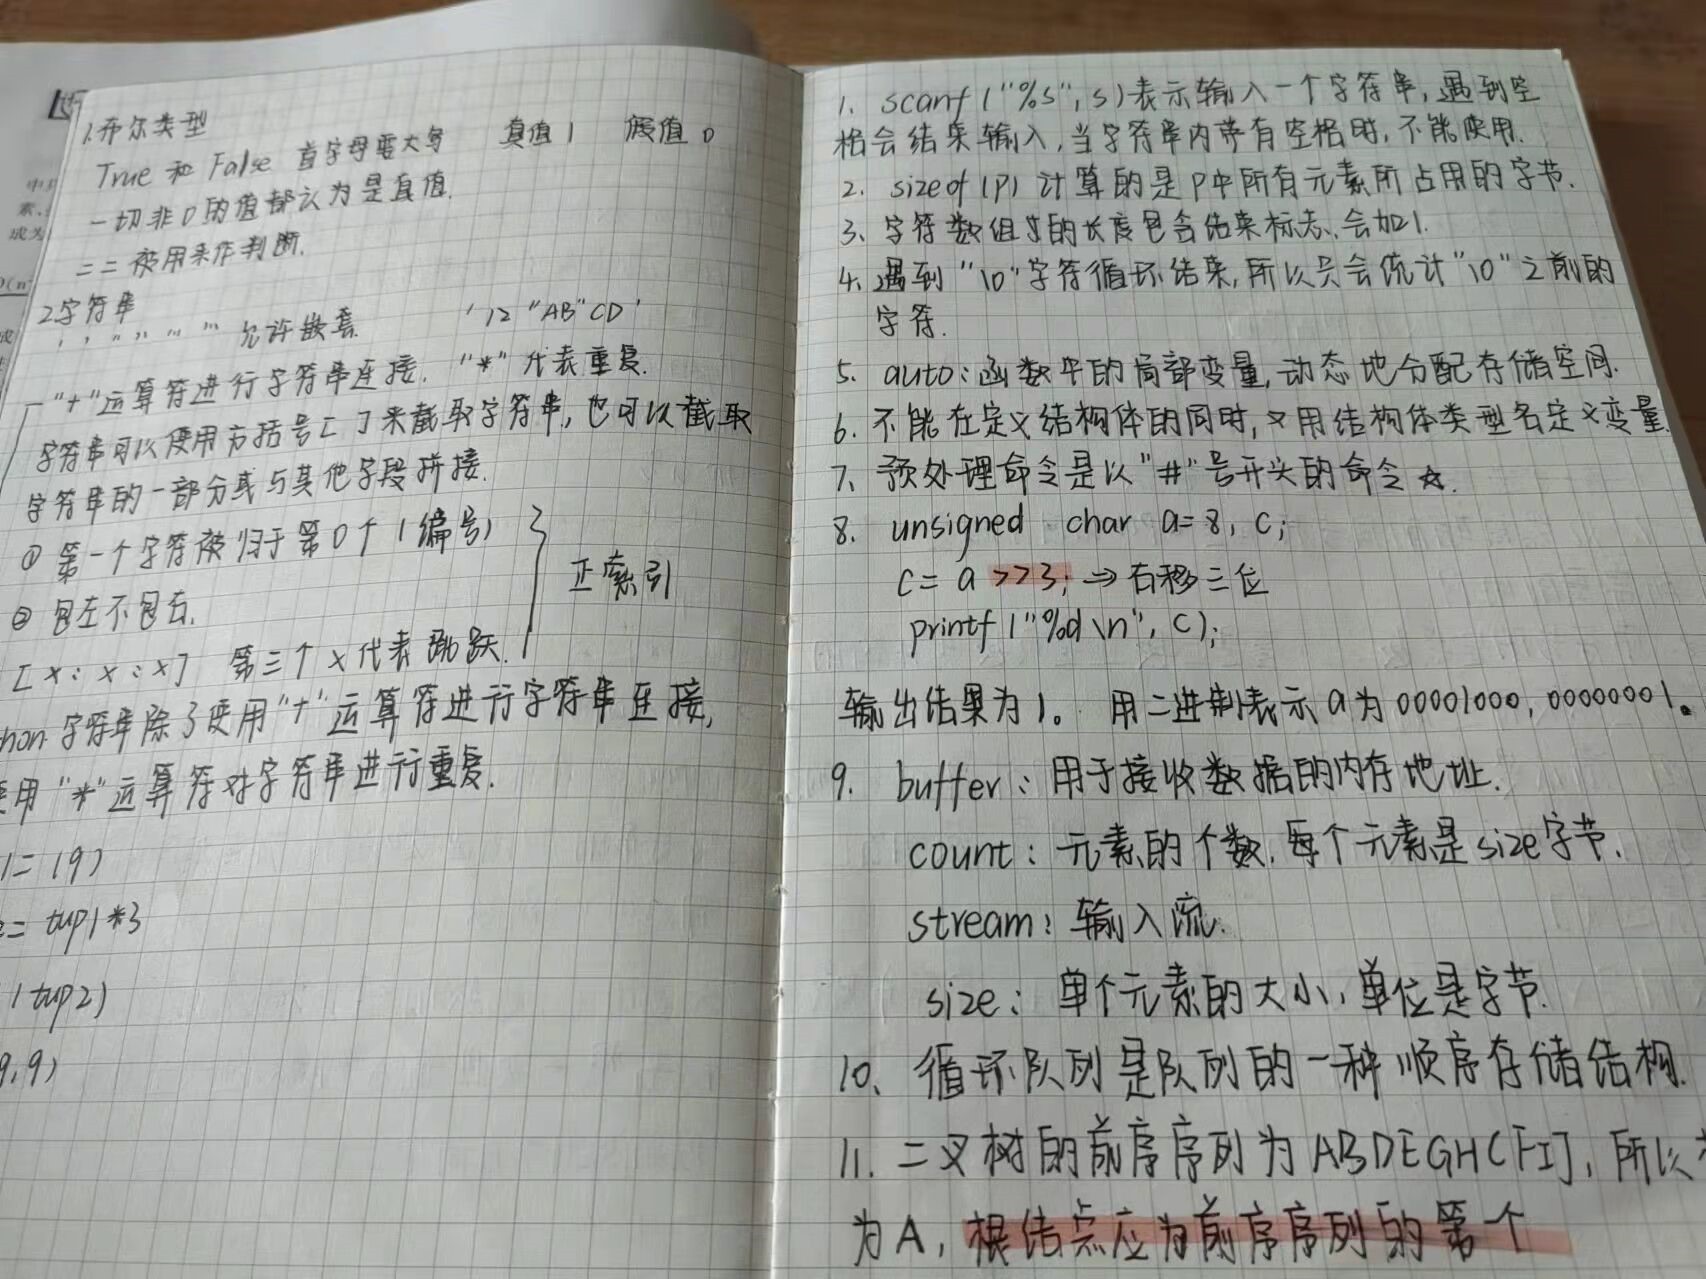 1.布尔类型
True 和 False 首字母要大写 真值1 假值0
一切非0的值都认为是真值.
== 被用来作判断.
2.字符串
' ' " " ''' ''' 允许嵌套. '12"AB"CD'
"+"运算符进行字符串连接. "*"代表重复.
字符串可以使用方括号[ ]来截取字符串,也可以截取
字符串的一部分或与其他字段拼接.
① 第一个字符被归于第0个(编号)
② 包左不包右.
正索引
[x:x:x] 第三个x代表跳跃.
hon 字符串除了使用"+"运算符进行字符串连接,
使用"*"运算符对字符串进行重复.
1=(9)
= tup1*3
(tup2)
9,9)
1. scanf("%s",s)表示输入一个字符串,遇到空
格会结束输入,当字符串内带有空格时,不能使用.
2. sizeof(p) 计算的是p中所有元素所占用的字节.
3、字符数组s的长度包含结束标志、会加1.
4、遇到"\0"字符循环结束,所以只会统计"\0"之前的
字符.
5. auto:函数中的局部变量,动态地分配存储空间.
6. 不能在定义结构体的同时,又用结构体类型名定义变量.
7、预处理命令是以"#"号开头的命令☆.
8. unsigned char a=8,c;
c=a>>3; ⇒右移三位
printf("%d\n",c);
输出结果为1。 用二进制表示a为00001000,00000001。
9. buffer:用于接收数据的内存地址.
count:元素的个数,每个元素是size字节.
stream:输入流.
size:单个元素的大小,单位是字节.
10、循环队列是队列的一种顺序存储结构.
11. 二叉树的前序序列为ABDEGHCFIJ,所以
为A,根结点应为前序序列的第一个